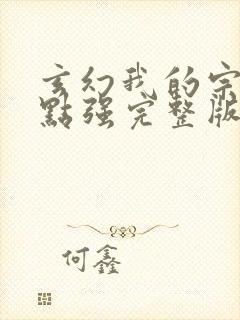 玄幻我的宗
點强完整版
何鑫